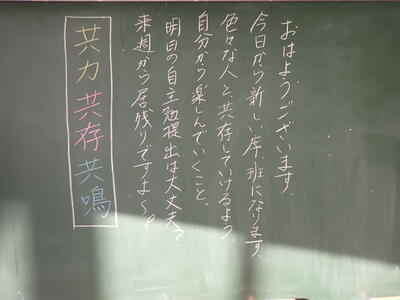 おはようございます。
今日から新しい席・班になります。
色々な人と、共存していけるよう
自分から楽しんでいくこと。
明日の自主勉提出は大丈夫?
来週から居残りですよ〜。
共力共存共鳴